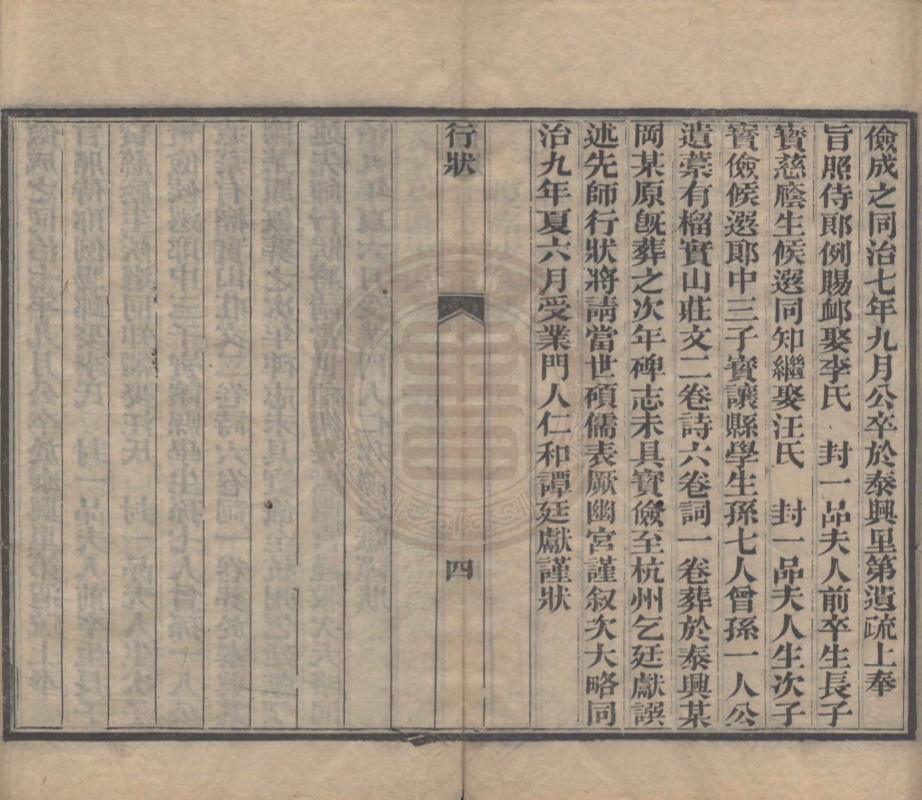 儉成之同治七年九月公卒於泰興里第遺疏上奉
旨照侍郎例賜卹娶李氏　封一品夫人前卒生長子
寳慈廕生候選同知繼娶汪氏　封一品夫人生次子
寳儉候選郎中三子寳讓縣學生孫七人曾孫一人公
遺藁有榴實山莊文二卷詩六卷詞一卷葬於泰興某
岡某原旣葬之次年碑志未具寳儉至杭州乞廷獻譔
述先師行狀將請當世碩儒表厥幽宮謹叙次大略同
治九年夏六月受業門人仁和譚廷獻謹狀
行狀
四